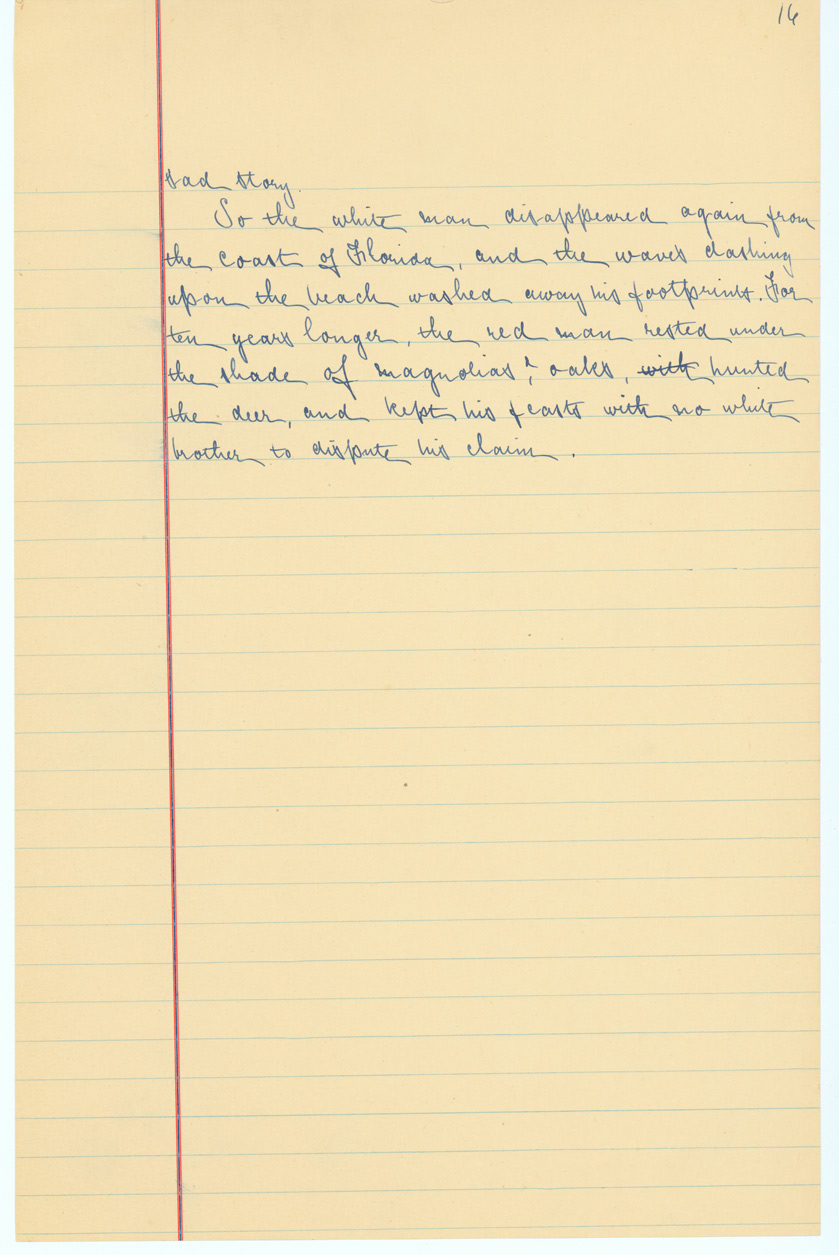 16
sad story.
So the white man disappeared again from
the coast of Florida, and the waves dashing
upon the beach washed away his footprints. For
ten years longer, the red man rested under
the shade of magnolias & oaks, with hunted
the deer, and kept his feasts with no white
brother to dispute his claim.